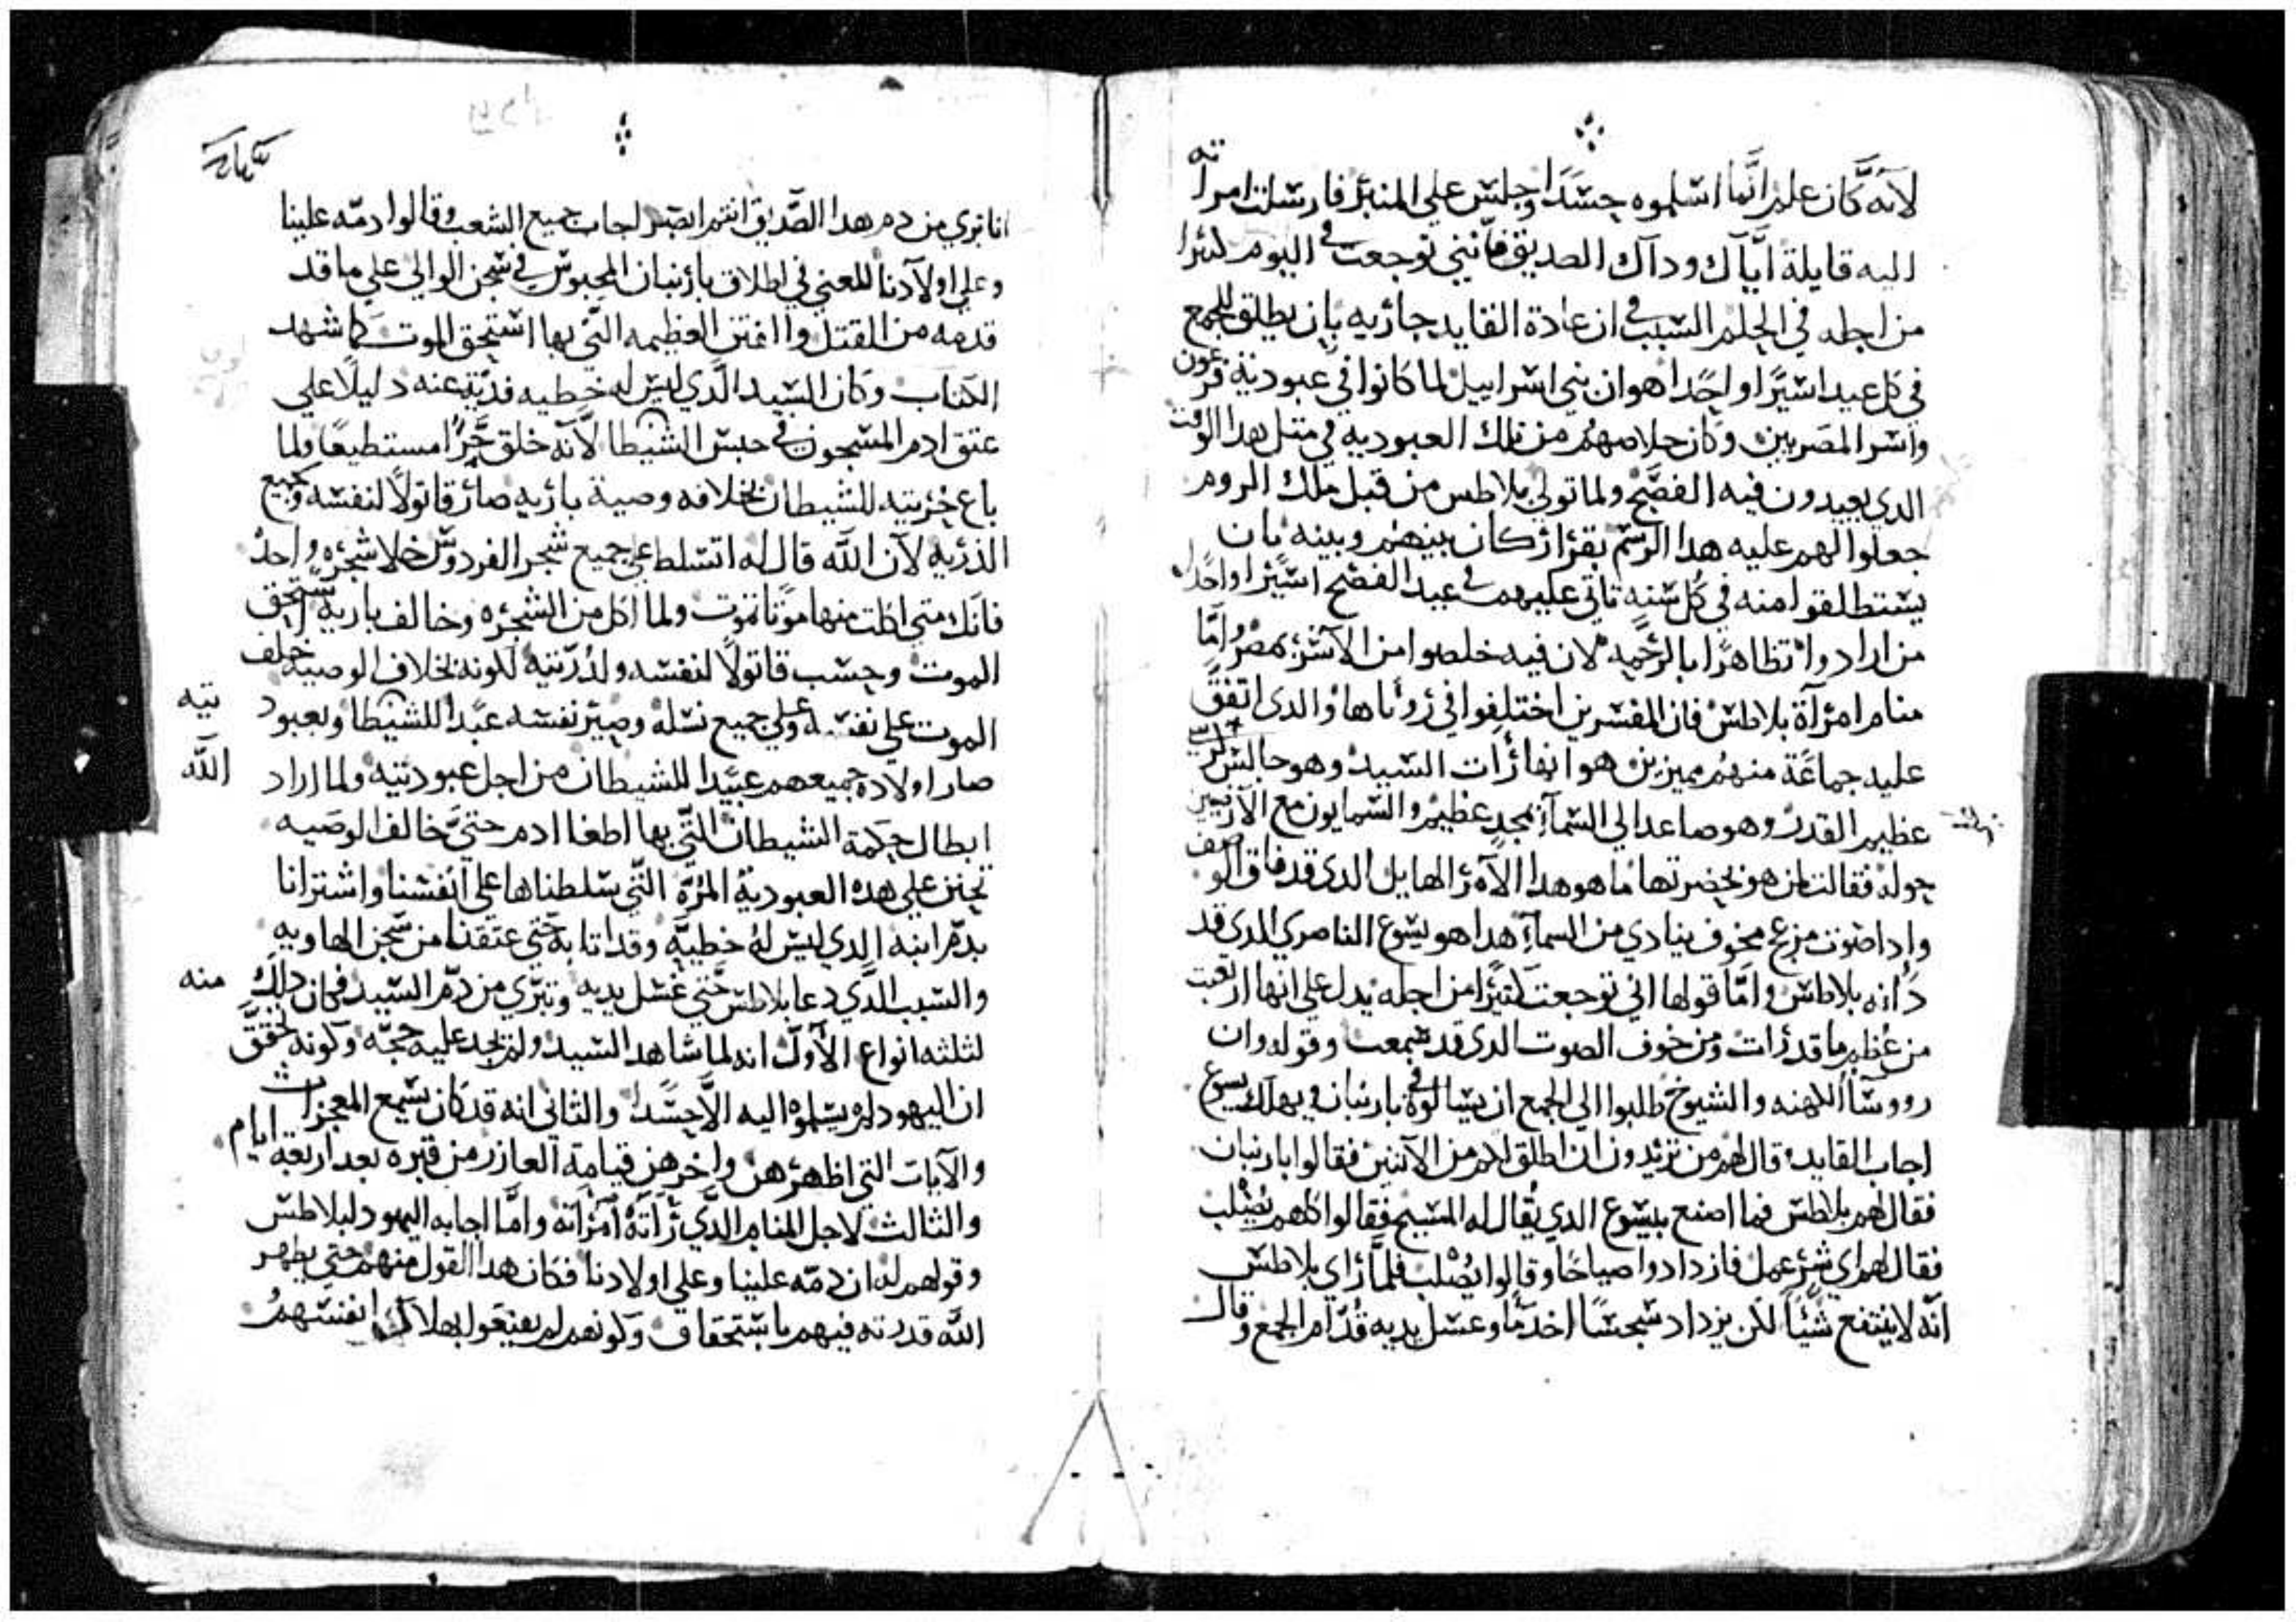 لانه كان علم انما اسلموه حسدًا وجلس علي المنبر فارسلت امراته
اليه قايلة اياك وداك الصديق فانني توجعت في اليوم كثيرا
من اجله في الحلم السبب في ان عادة القايد جاريه بان يطلق للجمع
في كل عيد اسيرًا واحدًا هو ان بني اسراييل لما كانوا في عبودية فرعون
واسر المصريين وكان خلاصهم من تلك العبوديه في متل هدا الوقت
الدي يعيدون فيه الفصح ولما تولي بلاطس من قبل ملك الروم
جعلوا لهم عليه هدا الرسم بقرار كان بينهم وبينه بان
يستطلقوا منه في كل سنه تاتي عليهم في عيد الفصح اسيرا واحدًا
من ارادوا تظاهرًا بالرحمه لان فيه خلصوا من الاسر بمصر واما
منام امرآة بلاطس فان المفسرين اختلفوا في رؤياها والدي اتفق
عليه جماعة منهم مميزين هو انها رات السيد وهو جالس كرسي
عظيم القدر وهو صاعد الي السمآء بمجد عظيم والسمايون مع الارضيين
حوله فقالت لمن هو بحضرتها ما هو هدا الآمر الهايل الدي قد فاق الوصف
وادا صوت مزعج مخوف ينادي من السمآء هدا هو يسوع الناصري الدي قد
دانه بلاطس واما قولها اني توجعت كثيرًا من اجله يدل علي انها ارتعبت
من عظم ما قد رات ومن خوف الصوت الدي قد سمعت وقوله وان
رووسا الكهنه والشيوخ طلبوا الي الجمع ان يسالوه في بارنبان ويهلك يسوع
اجاب القايد وقال لهم من تريدون ان اطلق لكم من الاتنين فقالوا بارنبان
فقال لهم بلاطس فما اصنع بيسوع الدي يقال له المسيح فقالوا كلهم يصلب
فقال لهم اي شر عمل فازدادوا صياحًا وقالوا يصلب فلما راي بلاطس
انه لا ينتفع شيًا لكن يزداد سجسًا اخد مًا وغسل يديه قدام الجمع وقال
انا بري من دم هدا الصديق انتم ابصر اجاب جميع الشعب وقالوا دمه علينا
وعلي اولآدنا المعني في اطلاق بارنبان المحبوس في سجن الوالي علي ما قد
قدمه من القتل والفتن العظيمه التي بها استحق الموت كما شهد
الكتاب وكان السيد الدي ليس له خطيه فديه عنه دليلًا علي
عتق ادم المسجون في حبس الشيطان لآنه خلق حرًا مستطيعًا ولما
باع حريته للشيطان بخلافه وصية باريه صار قاتولًا لنفسه وجميع
الذريه لآن الله قال له اتسلط علي جميع شجر الفردوس خلا شجره واحده
فانك متي اكلت منها موتًا تموت ولما اكل من الشجره وخالف باريه استحق
الموت وحسب قاتولًا لنفسه ولدريته لكونه بخلاف الوصيه خلف
الموت علي نفسه وعلي جميع نسله وصير نفسه عبدًا للشيطان وبعبوديته
صار اولاده جميعهم عبيدا للشيطان من اجل عبوديته ولما اراد الله
ابطال حكمة الشيطان التي بها اطغا ادم حتي خالف الوصيه
تحنن علي هده العبودية المرة التي سلطناها علي انفسنا واشترانا
بدم ابنه الدي ليس له خطيه وقد اتا به حتي عتقنا من سجن الهاويه
والسبب الدي دعا بلاطس حتي غسل يديه وتبري من دم السيد فكان دلك منه
لثلثه انواع الآول انه لما شاهد السيد ولم يجد عليه حجه وكونه تحقق
ان اليهود لم يسلموه اليه الآ حسدًا والثاني انه قد كان يسمع المعجزات
والآيات التي اظهرهن واخرهن قيامة العازر من قبره بعد اربعة ايام
والثالث لاجل المنام الدي راته امراته واما اجابه اليهود لبلاطس
وقولهم له ان دمه علينا وعلي اولادنا فكان هدا القول منهم حتي يظهر
الله قدرته فيهم باستحقاق وكونهم لم يقنعوا بهلاك انفسهم